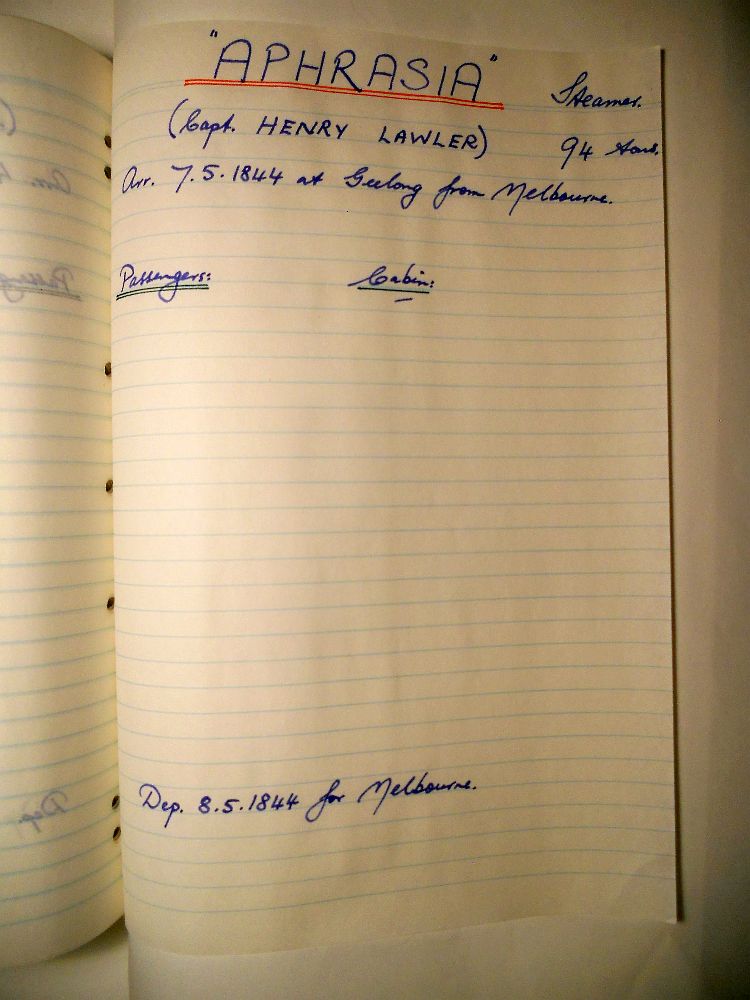 "APHRASIA" Steamer.
(Capt. HENRY LAWLER) 94 tons.
Arr. 7.5.1844 at Geelong from Melbourne.
Passengers: Cabin:
Dep. 8.5.1844 for Melbourne.